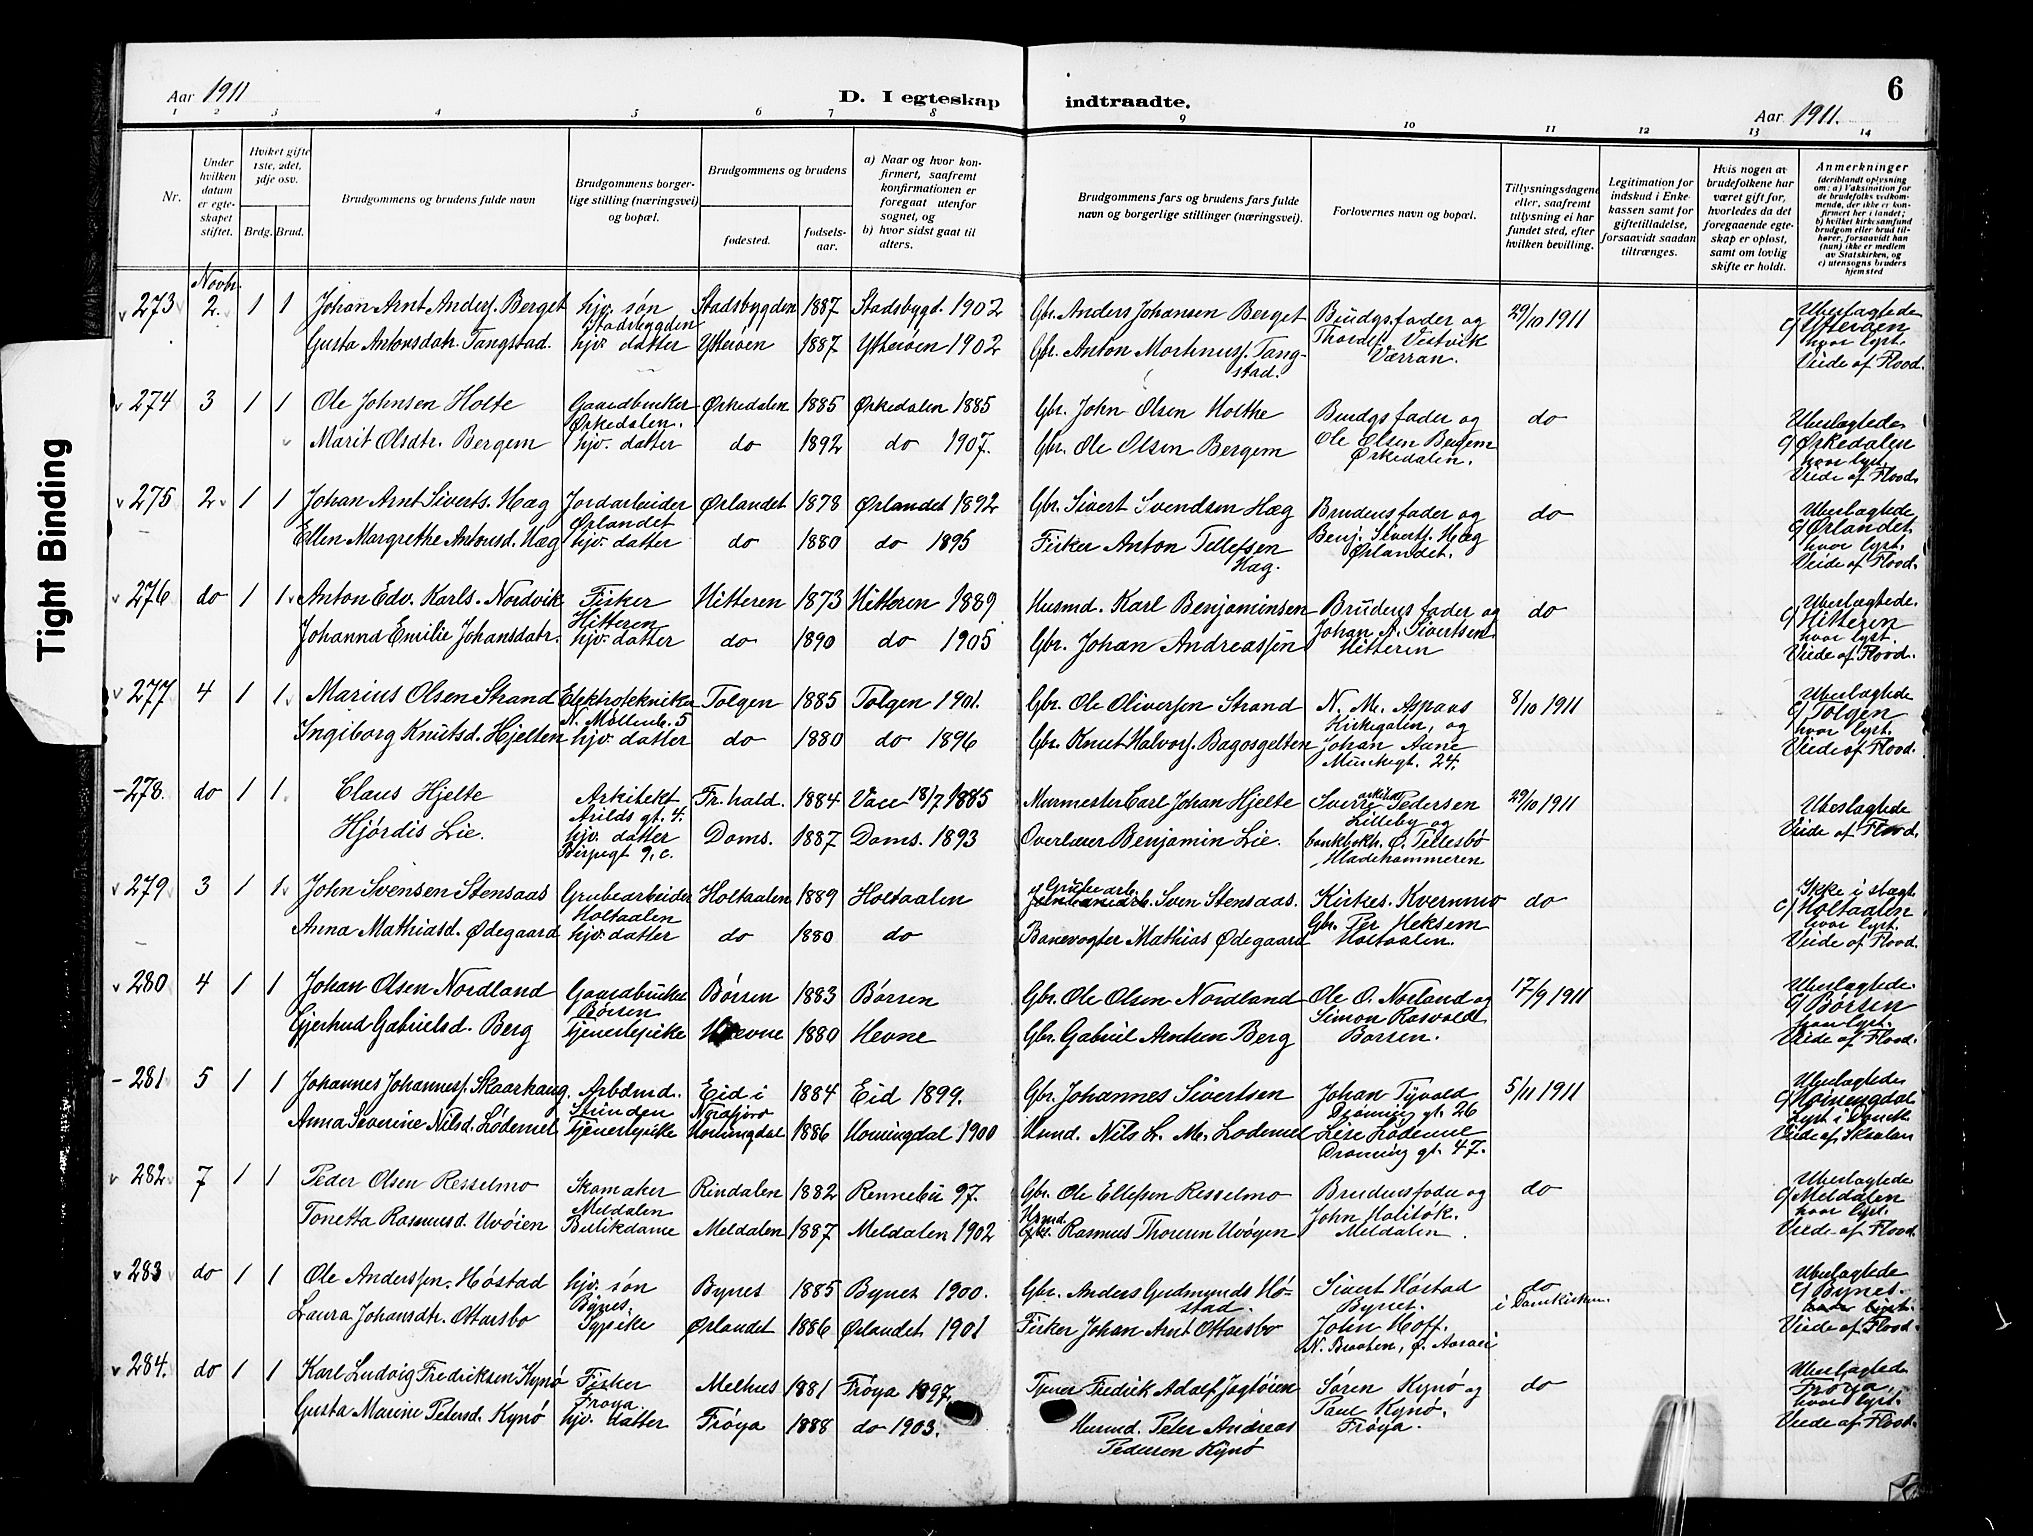 Tight Binding
Aar 1911
D. I egteskap indtraadte.
Aar 1911.
6
1 2 3 4 5 6 7 8 9 10 11 12 13 14
Nr.
Under hvilken datum er egteskapet stiftet.
Hvilket gifte 1ste, 2det, 3dje osv.
Brdg. Brud.
Brudgommens og brudens fulde navn
Brudgommens borgerlige stilling (næringsvei) og bopæl.
Brudgommens og brudens
fødested.
fødselsaar.
a) Naar og hvor konfirmert, saafremt konfirmationen er foregaat utenfor sognet, og
b) hvor sidst gaat til alters.
Brudgommens fars og brudens fars fulde navn og borgerlige stillinger (næringsvei).
Forlovernes navn og bopæl.
Tillysningsdagene eller, saafremt tillysning ei har fundet sted, efter hvilken bevilling.
Legitimation for indskud i Enkekassen samt for giftetilladelse, forsaavidt saadan tiltrænges.
Hvis nogen av brudefolkene har været gift før, hvorledes da det foregaaende egteskap er opløst, samt om lovlig skifte er holdt.
Anmerkninger (deriblandt oplysning om: a) Vaksination for de brudefolks vedkommende, der ikke er konfirmert her i landet; b) hvilket kirkesamfund brudgom eller brud tilhører, forsaavidt han (hun) ikke er medlem av Statskirken, og c) utensogns bruders hjemsted
Novbr.
273 2. 1 1 Johan Arnt Anders. Berget hjv. søn Stadsbygden 1887 Stadsbygd. 1902 Gbr. Anders Johansen Berget Brudgs. fader og 29/10 1911 Ubeslægtede
Stadsbygden
Gusta Antonsdatr. Tangstad. hjv. datter Ytterøen 1887 Ytterøen 1902 Gbr. Anton Martinus. Tangstad. Vestvik Værran. c/ Ytterøen hvor lyst. Viede af Flood.
274 3 1 1 Ole Johnsen Holte Gaardbruker Ørkedalen 1885 Ørkedalen 1885 Gbr. John Olsen Holthe Brudgs fader og do Ubeslægtede
Ørkedalen.
Marit Olsdtr. Bergem hjv. datter do 1892 do 1907. Gbr. Ole Olsen Bergem Ole Olsen Bergem Ørkedalen. c/ Ørkedalen hvor lyst. Viede af Flood.
275 2 1 1 Johan Arnt Siverts. Hæg Jordarbeider Ørlandet 1878 Ørlandet 1892 Gbr. Sivert Svendsen Hæg Brudens fader og do Ubeslægtede
Ørlandet
Ellen Margrethe Antonsd. Hæg hjv. datter do 1880 do 1895 Fisker Anton Tellefsen Hæg. Benj. Siverts. Hæg Ørlandet. c/ Ørlandet. hvor lyst. Viede af Flood.
276 do 1 1 Anton Edv. Karls. Nordvik Fisker Hitteren 1873 Hitteren 1889 Husmd. Karl Benjaminsen Brudens fader og do Ubeslægtede.
Hitteren
Johanna Emilie Johansdatr. hjv. datter do 1890 do 1905 Gbr. Johan Andreassen Johan A. Sivertsen Hitteren c/ Hitteren hvor lyst. Viede af Flood.
277 4 1 1 Marius Olsen Strand Elektrotekniker Tolgen 1885 Tolgen 1901. Gbr. Ole Oliversen Strand N. M. Aspaas 8/10 1911 Ubeslægtede
N. Møllenb. 5 Kirkegaten, og
Ingiborg Knutsd. Hjelten hjv. datter do 1880 do 1896 Gbr. Knut Halvors. Johan Aune Munkegt. 24. c/ Tolgen hvor lyst. Viede af Flood.
278. do 1 1 Claus Hjelte Arkitekt Fr.hald. 1884 18/7 1885 Murmester Carl Johan Hjelte Sverre arkitekt Pedersen 29/10 1911 Ubeslægtede
Arilds gt. 4. Lilleby og
Hjørdis Lie. hjv. datter Doms. 1887 Doms. 1893 Overlærer Benjamin Lie. Ø. Tillesbø Hladehammeren Viede af Flood.
9. c.
279 3 1 1 John Svensen Stensaas Grubearbeider Holtaalen 1889 Holtaalen Grubearb. Sven Stensaas. Kirkes. Kvernmo do Ikke i slægt.
Holtaalen
Anna Mathiasd. Ødegaard hjv. datter do 1880 do Banevogter Mathias Ødegaard Gbr. Per Heksem Holtaalen. c/ Holtaalen hvor lyst. Viede af Flood.
280 4 1 1 Johan Olsen Nordland Gaardbruker Børsen 1883 Børsen Gbr. Ole Olsen Nordland Ole O. Norland og 17/9 1911 Ubeslægtede
Børsen
Gjertrud Gabrielsd. Berg tjenestepike Hevne 1880 Hevne Gbr. Gabriel Arntsen Berg Simon Rasvold Børsen. c/ Børsen hvor lyst. Viede af Flood.
281 5 1 1 Johannes Johannes. Skaarhaug. Arbdmd. Eid i 1884 Eid 1899. Gbr. Johannes Sivertsen Johan Tyvold 5/11 1911 Ubeslægtede
Strinden Nordfjord Dronning gt. 26
Anna Severine Nilsd. Lødemel Tjenestepike Horningdal 1886 Horningdal 1900 Husmd. Nils L. M. Lødemel Lise Lødemel Dronning gt. 47. c/ Horningdal Lyst i Domk. Viede af Skaslan
282 7 1 1 Peder Olsen Resselmo Skomaker Rindalen 1882 Rennebu 97. Gbr. Ole Ellefsen Resselmo Brudens fader og do Ubeslægtede
Meldalen
Tonetta Rasmusd. Uvøien Butikdame Meldalen 1887 Meldalen 1902 Husmd. Rasmus Thoresen Uvøyen John Holitøk. Meldalen c/ Meldalen hvor lyst. Viede af Flood.
283 do 1 1 Ole Anderssen Høstad hjv. søn Bynes 1885 Bynes 1900. Gbr. Anders Gudmunds Høstad. Sivert Høstad do Ubeslægtede
Bynes. Bynes. i Domkirken.
Laura Johansdtr. Ottarsbo Ørlandet 1886 Ørlandet 1901 Fisker Johan Arnt Ottarsbo John Hoff. c/ Bynes. hvor lyst. Viede af Flood.
284. do 1 1 Karl Ludvig Fredriksen Kynø Fisker Melhus 1881 Frøya 1897. Fredrik Adolf Jagtøien Søren Kynø og do Ubeslægtede
Frøya.
Gusta Marine Petersd. Kynø hjv. datter Frøya 1888 do 1903. Husmd. Peter Andreas Pedersen Kynø Paul Kynø. Frøya. Frøya. hvor lyst. Viede af Flood.